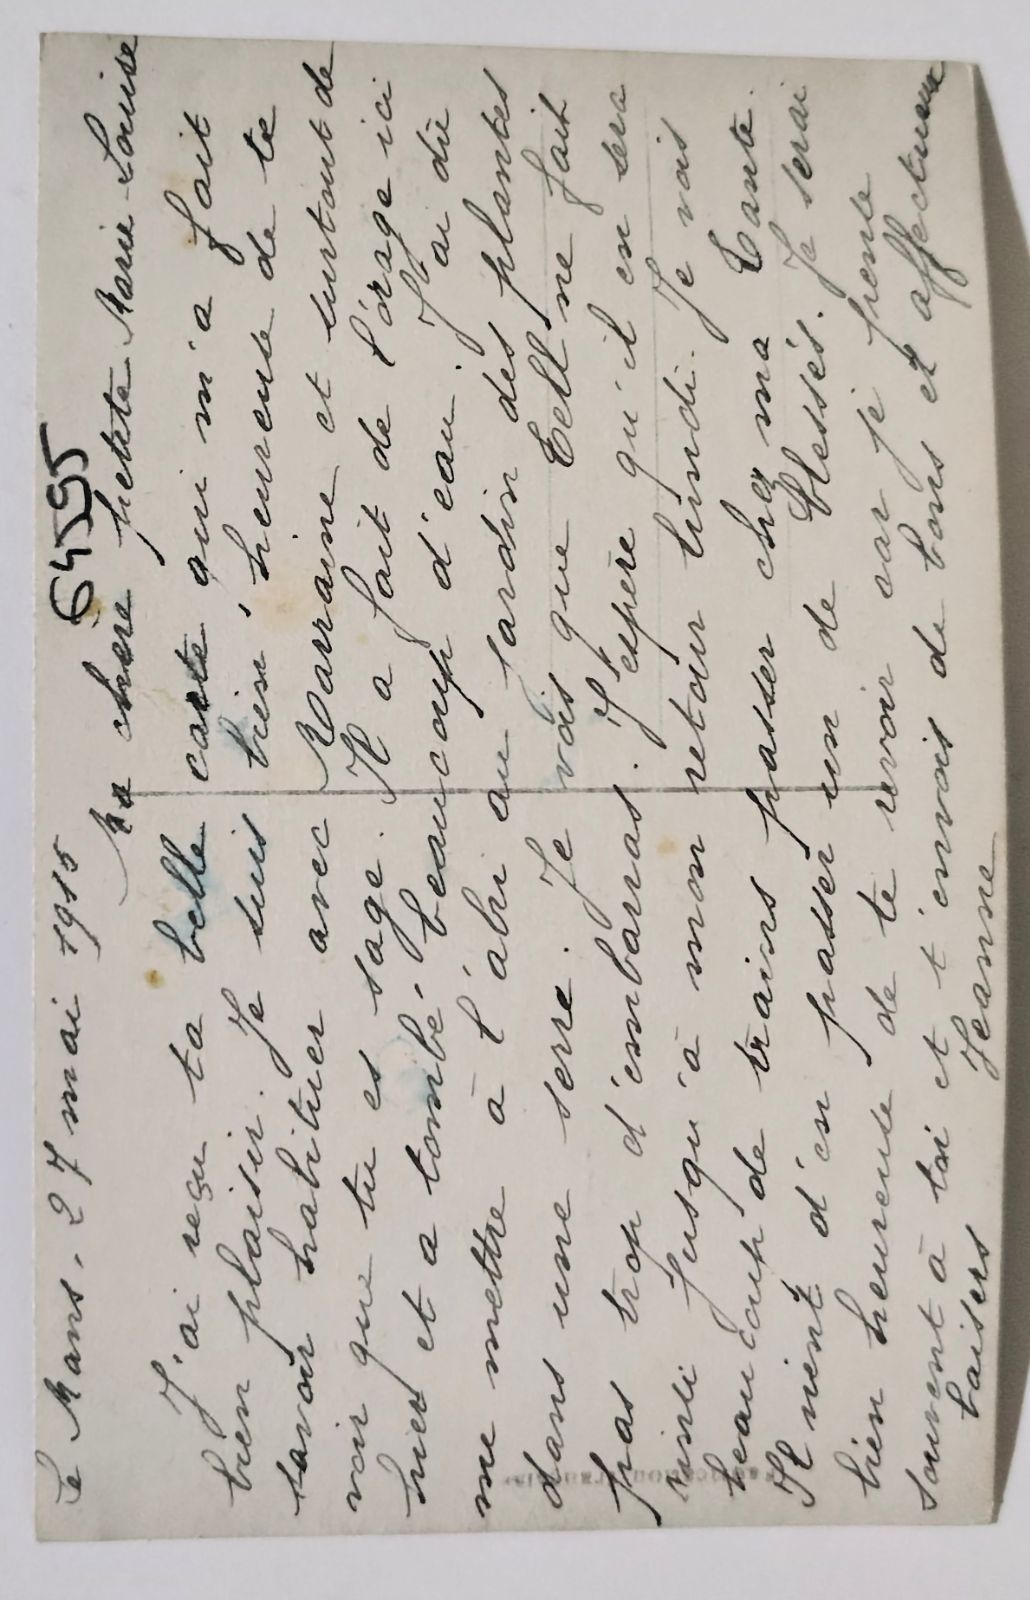 Le Mans - 27 mai 1915
64595
Ma chere petite Marie-Louise
J'ai reçu ta belle carte qui m'a fait
bien plaisir. Je suis bien heureuse de te
savoir habituer avec Marraine et surtout de
voir que tu es sage. Il a fait de l'orage ici
hier et a tombé beaucoup d'eau. J'ai dû
me mettre à l'abri au jardin des plantes
dans une serre. Je vois que Cell ne fait
pas trop d'embarras. J'espère qu'il en sera
ainsi jusqu'à mon retour lundi. Je vois
beaucoup de trains passer chez ma tante.
Il vient d'en passer un de blessés. Je serai
bien heureuse de te revoir car je pense
souvent à toi et t'envois de bons et affectueux
baisers Jeanne